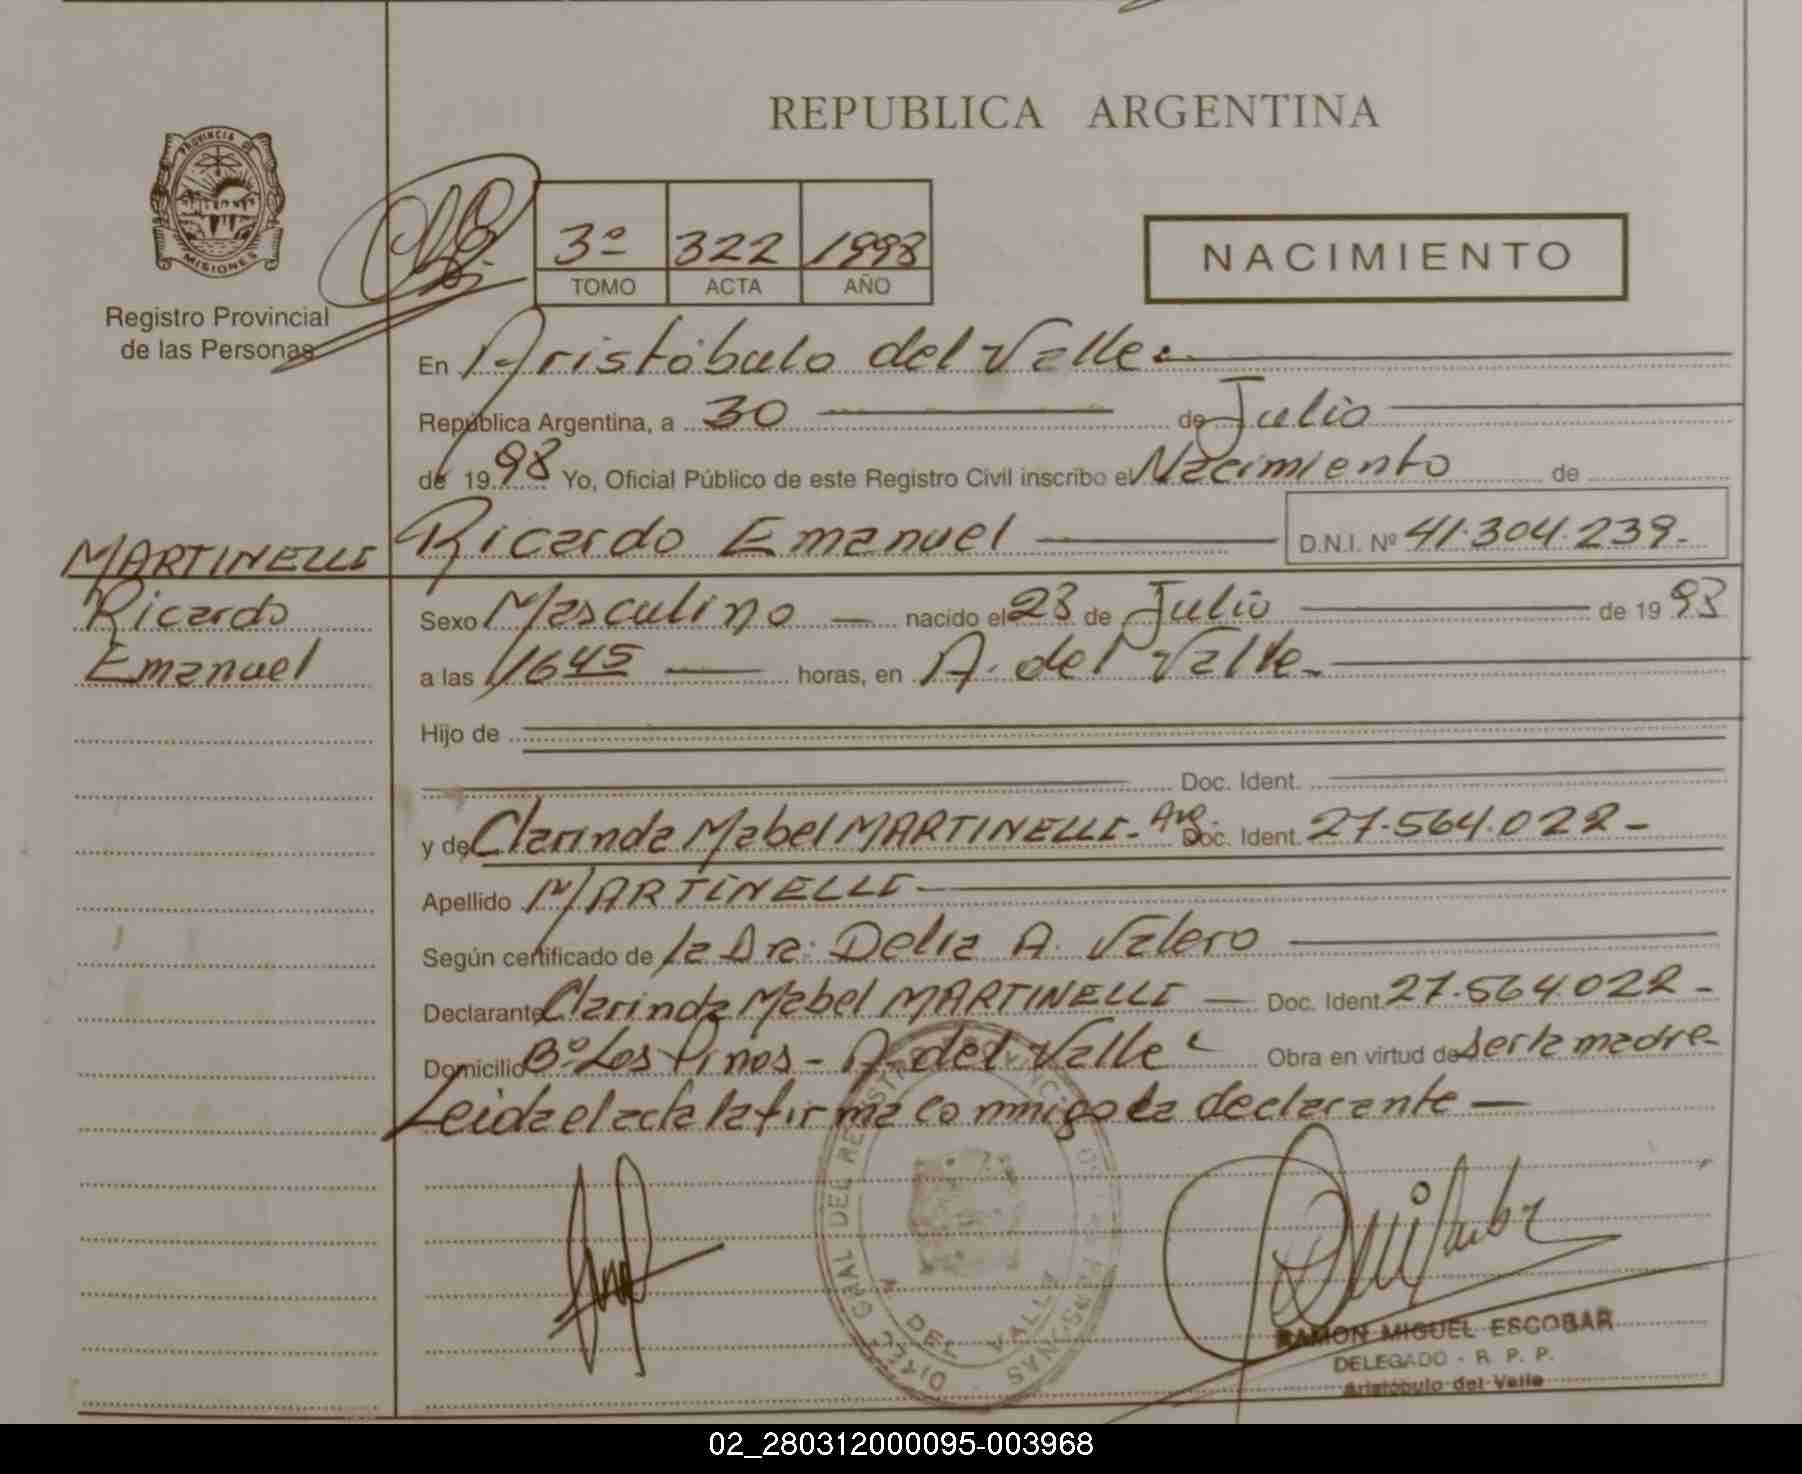 REPUBLICA ARGENTINA
PROVINCIA DE
MISIONES
Registro Provincial
de las Personas
3º 322 1998
TOMO ACTA AÑO
NACIMIENTO
En Aristóbulo del Valle
República Argentina, a 30 de Julio
de 1998 Yo, Oficial Público de este Registro Civil inscribo el Nacimiento de
Ricardo Emanuel D.N.I. Nº 41.304.239.-
MARTINELLI
Ricardo
Emanuel
Sexo Masculino — nacido el 23 de Julio de 1998
a las 1645 horas, en A. del Valle.-
Hijo de
Doc. Ident.
y de Clarinda Mabel MARTINELLI - Arg. Doc. Ident. 27.564.022-
Apellido MARTINELLI
Según certificado de la Dra. Delia A. Valero
Declarante Clarinda Mabel MARTINELLI — Doc. Ident. 27.564.022-
Domicilio Bº Los Pinos - A. del Valle Obra en virtud de ser la madre-
Leida el acta la firma conmigo la declarante —
RAMON MIGUEL ESCOBAR
DELEGADO - R. P. P.
Aristóbulo del Valle
02_280312000095-003968